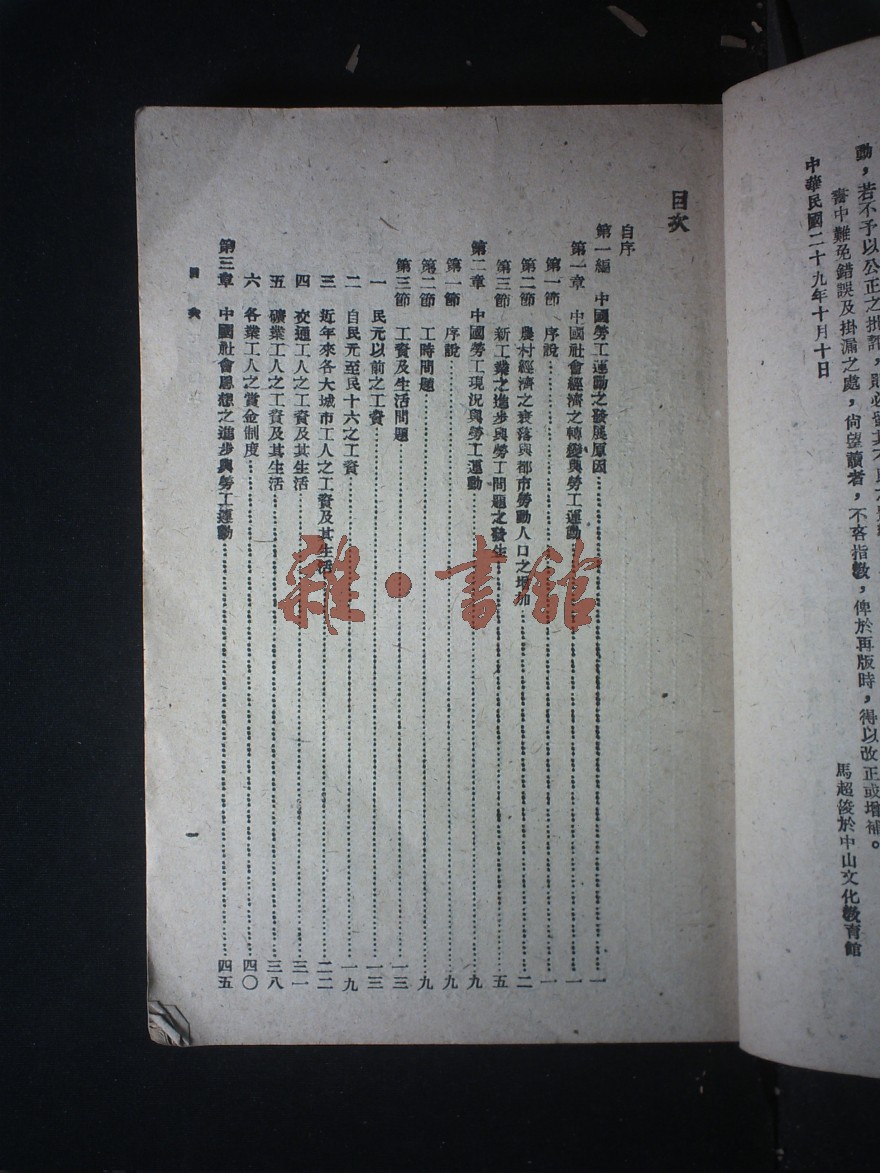 動，若不予以公正之批評，則必
書中難免錯誤及掛漏之處，尙望讀者，不吝指敎，俾於再版時，得以改正或增補。
中華民國二十九年十月十日
馬超俊於中山文化敎育館
目次
自序
第一編　中國勞工運動之發展原因……一
第一章　中國社會經濟之轉變與勞工運動……一
第一節　序說……一
第二節　農村經濟之衰落與都市勞動人口之增加……二
第三節　新工業之進步與勞工問題之發生……五
第二章　中國勞工現況與勞工運動……九
第一節　序說……九
第二節　工時問題……九
第三節　工資及生活問題……一三
一　民元以前之工資……一三
二　自民元至民十六之工資……一九
三　近年來各大城市工人之工資及其生活……二二
四　交通工人之工資及其生活……三一
五　礦業工人之工資及其生活……三八
六　各業工人之賞金制度……四〇
第三章　中國社會思想之進步與勞工運動……四五
目次
一
雜·書館